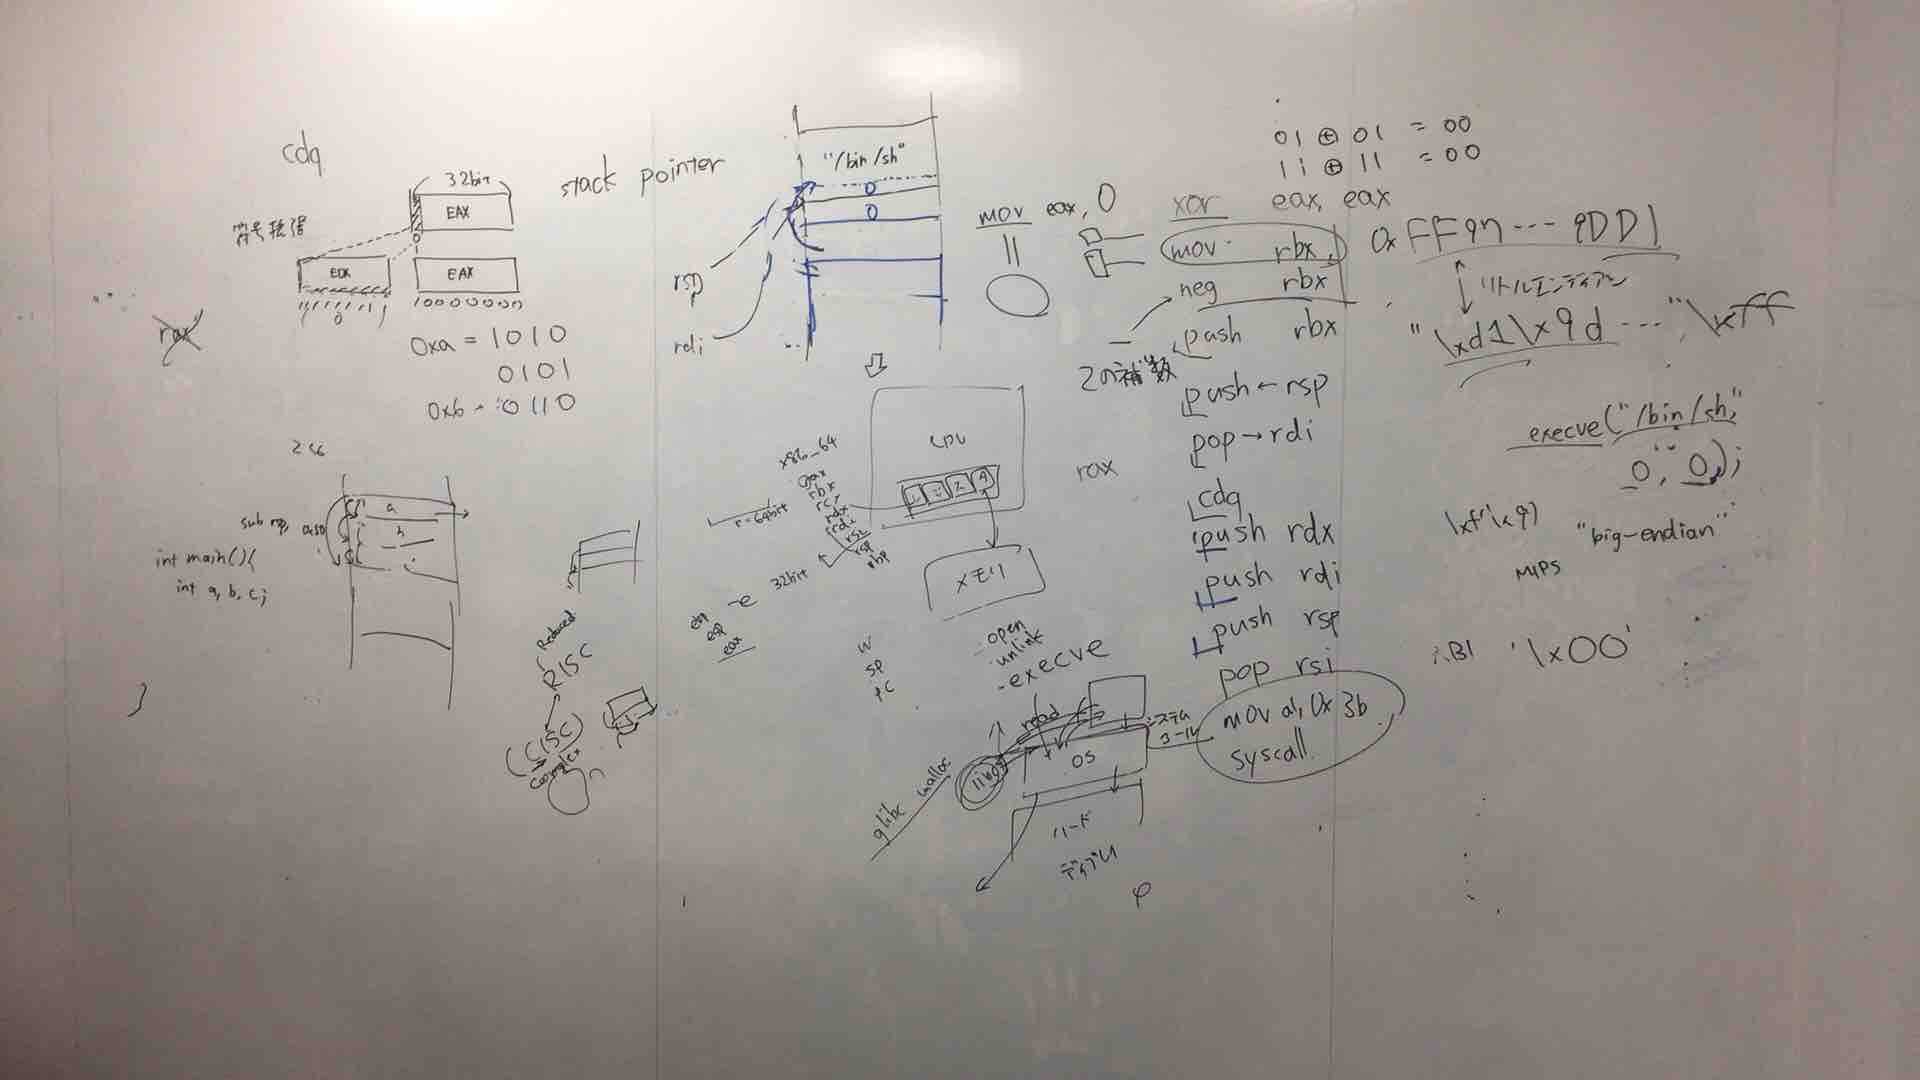 cdq
32bit
EAX
符号拡張
EDX
EAX
0
10000000
0xa = 1010
0101
0xb - 0110
rax
stack pointer
"/bin/sh"
0
0
rsp
rdi
mov eax, 0
01 ⊕ 01 = 00
11 ⊕ 11 = 00
xor eax, eax
mov rbx,
neg rbx
push rbx
2の補数
push ← rsp
pop → rdi
cdq
push rdx
push rdi
push rsp
pop rsi
mov al, 0x3b
syscall
リトルエンディアン
"\xd1\x9d ... "\xff
execve("/bin/sh,"
0, 0,);
"big-endian"
MIPS
'\x00'
sub rsp,
a
int main(){
int a, b, c;
}
Reduced
RISC
(CISC)
Complex
x86_64
rbx
rdx
rdi
rsi
rsp
rbp
r-64bit
32bit
-e
esp
eax
CPU
rax
メモリ
sp
- open
unlink
- execve
read
システム
コール
OS
libc
glibc malloc
ハード